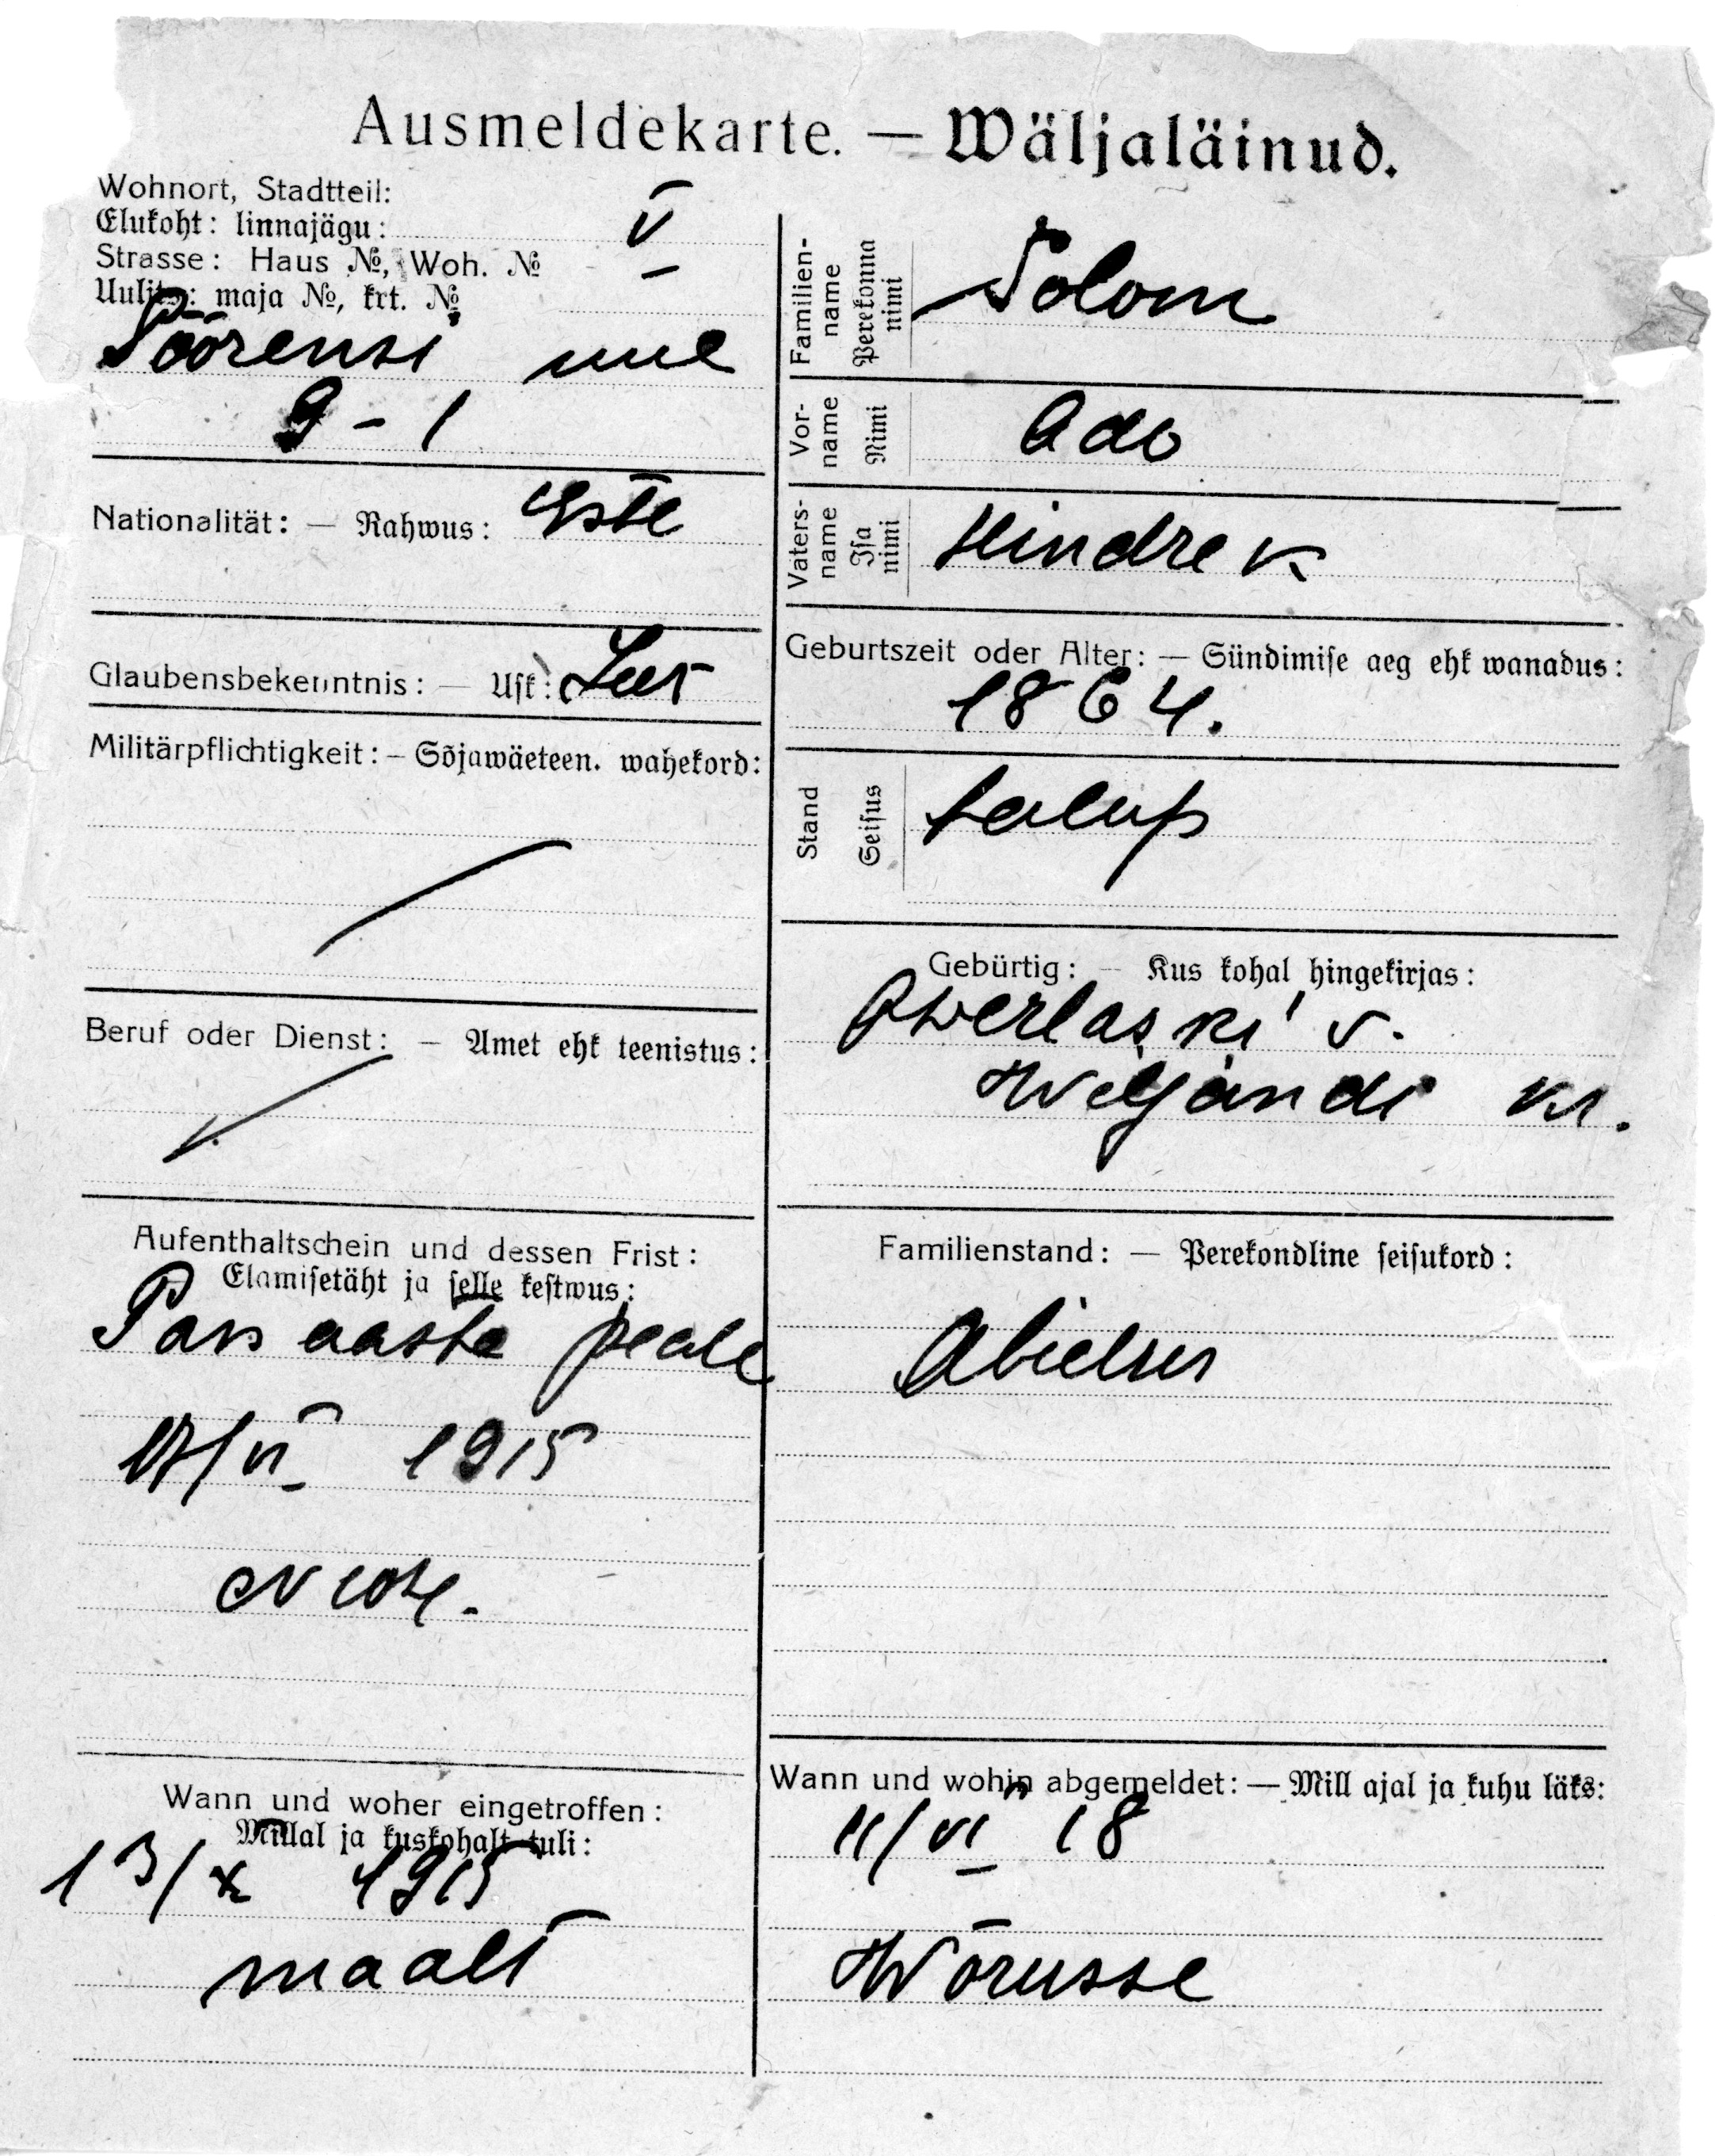 Ausmeldekarte. — Wäljaläinud.
Wohnort, Stadtteil:
Elukoht: linnajägu: V
Strasse: Haus №, Woh. №
Uulits: maja №, krt. №
9 - 1
Nationalität: — Rahwus: Este
Glaubensbekenntnis: — Usk: Lut
Militärpflichtigkeit: — Sõjawäeteen. wahekord:
Beruf oder Dienst: — Amet ehk teenistus:
Aufenthaltschein und dessen Frist:
Elamisetäht ja selle kestwus:
Pas aasta peale
17/VI 1915
Wann und woher eingetroffen:
Millal ja kuskohalt tuli:
13/X 1915
maalt
Familien-name Perekonna nimi Solom
Vor-name Nimi Ado
Vaters-name Isa nimi Hindrek
Geburtszeit oder Alter: — Sündimise aeg ehk wanadus:
1864.
Stand Seisus talup
Gebürtig: — Kus kohal hingekirjas:
Owerlaski v.
Wiljandi kr.
Familienstand: — Perekondline seisukord:
Abielus
Wann und wohin abgemeldet: — Mill ajal ja kuhu läks:
11/VI 18
Wõrusse